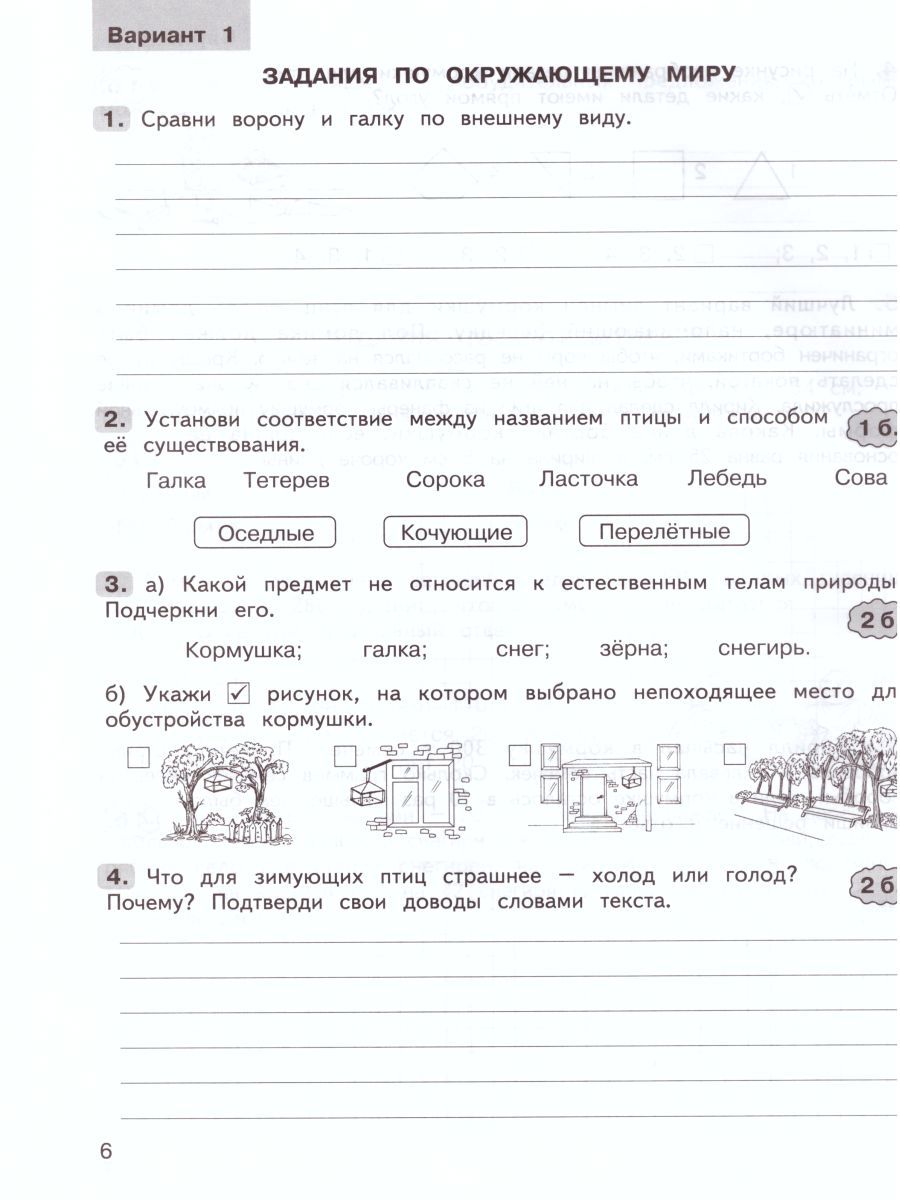 Вариант 1
ЗАДАНИЯ ПО ОКРУЖАЮЩЕМУ МИРУ
1. Сравни ворону и галку по внешнему виду.
2. Установи соответствие между названием птицы и способом
её существования.
1 б.
Галка Тетерев Сорока Ласточка Лебедь Сова
Оседлые Кочующие Перелётные
3. а) Какой предмет не относится к естественным телам природы
Подчеркни его.
2 б
Кормушка; галка; снег; зёрна; снегирь.
б) Укажи ✓ рисунок, на котором выбрано непоходящее место дл
обустройства кормушки.
4. Что для зимующих птиц страшнее – холод или голод?
Почему? Подтверди свои доводы словами текста.
2 б
6